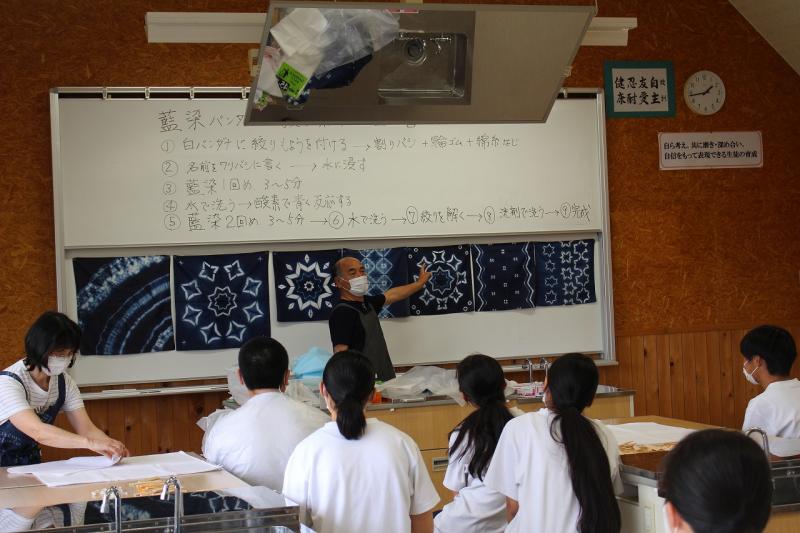 藍染バンダナ
① 白バンダナに絞りもようを付ける → 割りバシ + 輪ゴム + 綿糸など
② 名前をワリバシに書く → 水に浸す
③ 藍染1回め 3〜5分
④ 水で洗う → 酸素で青く反応する
⑤ 藍染2回め 3〜5分 → ⑥ 水で洗う → ⑦ 絞りを解く → ⑧ 洗剤で洗う → ⑨ 完成
健康 忍耐 友愛 自主
自ら考え、共に磨き・深め合い、
自信をもって表現できる生徒の育成